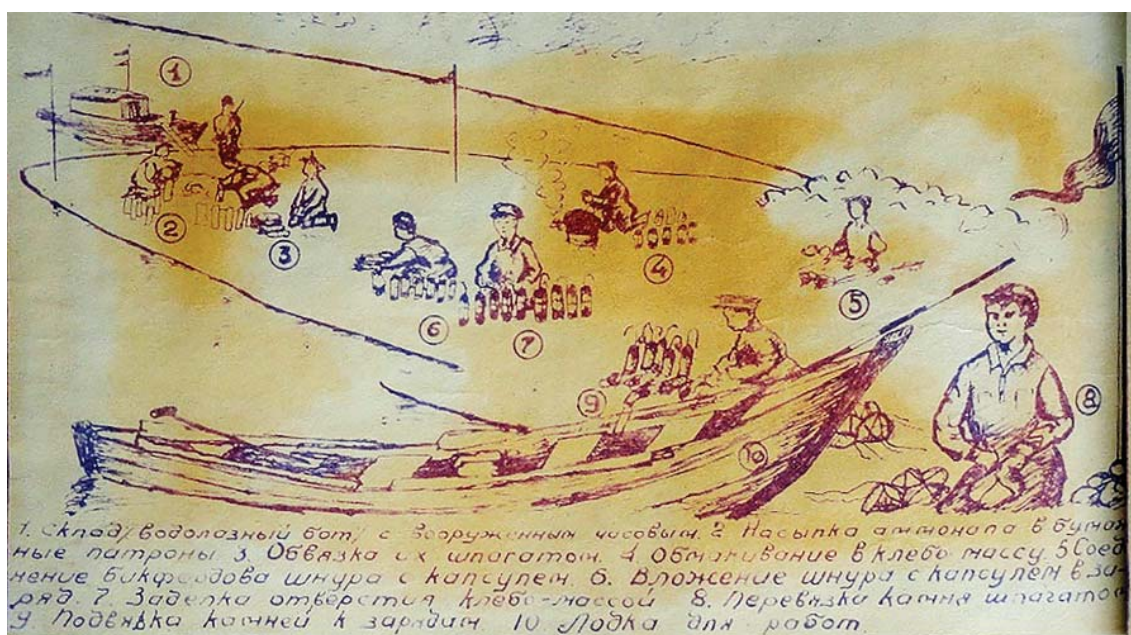 1
2
3
4
5
6
7
8
9
10
1. Склад/водолазный бот/ с вооруженным часовым. 2 Насыпка аммонала в бумаж
ные патроны 3. Обвязка их шпагатом. 4 Обмакивание в клебо массу. 5 Соед
нение бикфордова шнура с капсулем. 6. Вложение шнура с капсулем в за-
ряд. 7. Заделка отверстия клебо-массой 8. Перевязка камня шпагатом
9. Подвязка камней к зарядам. 10. Лодка для работ.